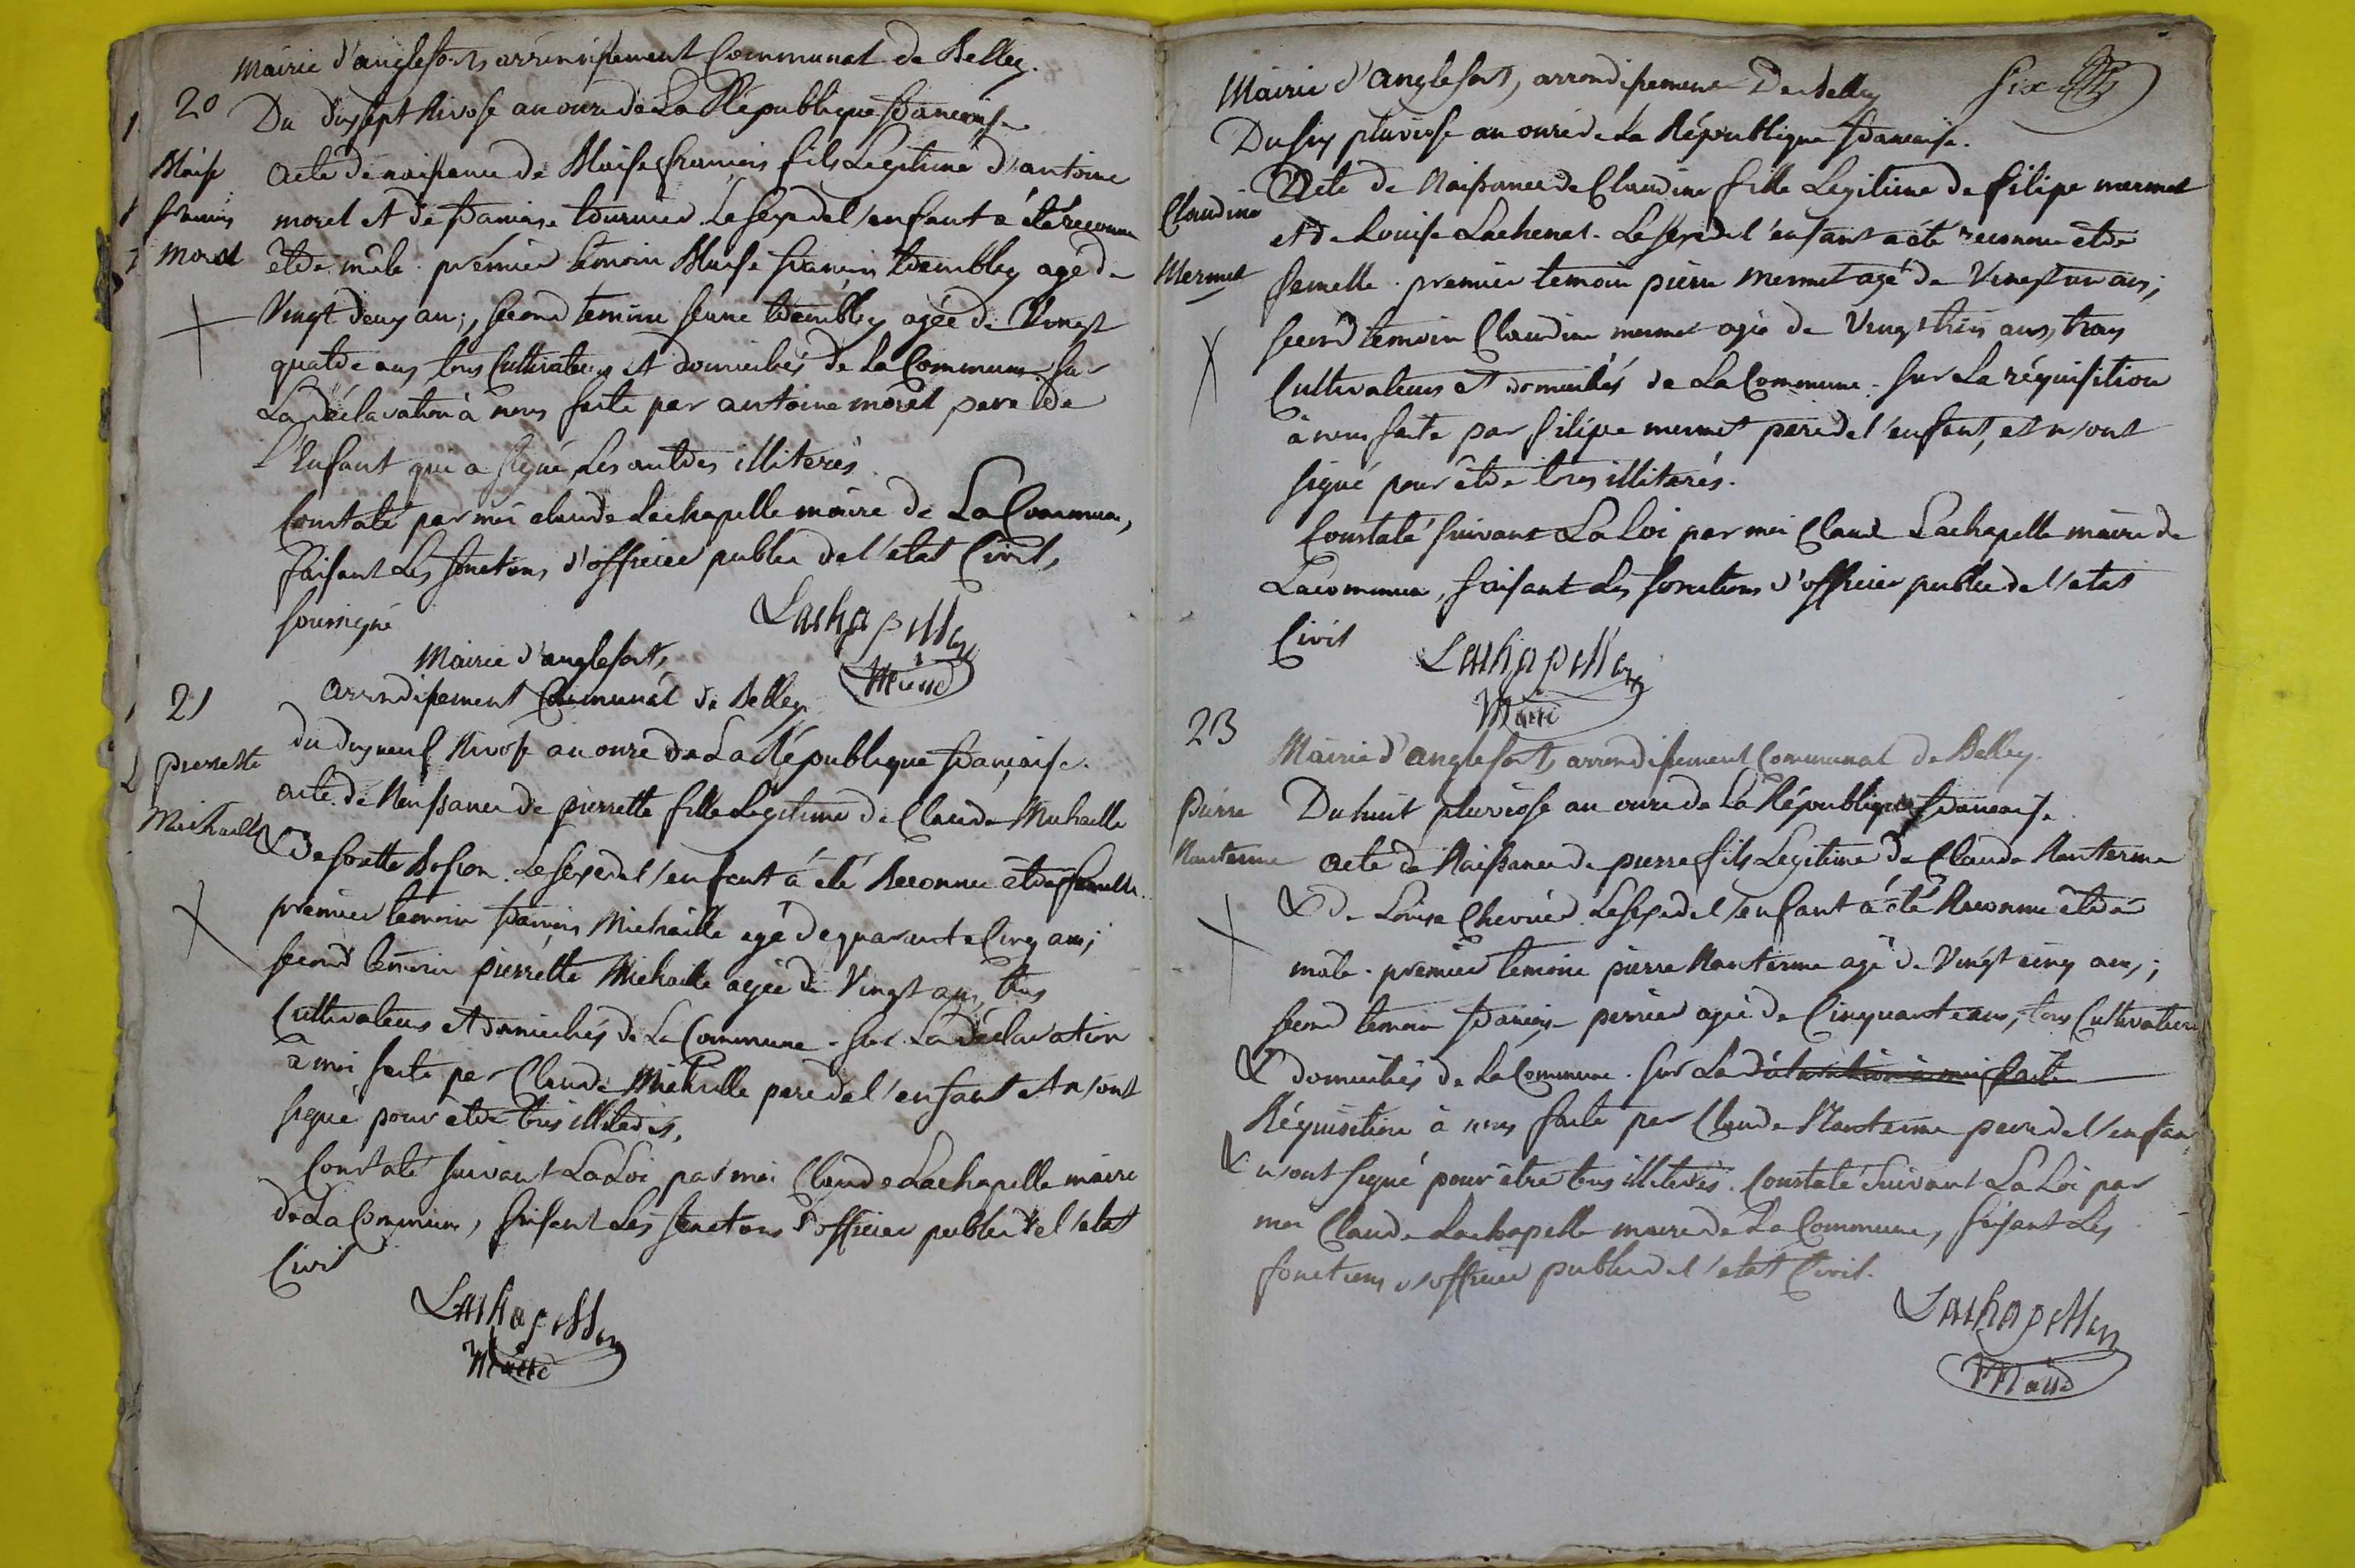 Mairie d'anglefort, arrondissement Communal de Belley.
20
Du dix sept Nivose an onze de La République française
Blaise
françois
Morel
acte de naissance de Blaise françois fils Legitime d'antoine
morel et de françoise tournier. Le sexe de l'enfant a été reconnu
être mâle. premier témoin Blaise françois trambley agé de
Vingt deux ans, second temoin trambley agée de Vingt
quatre ans, tous Cultivateurs et domiciliés de la Commune. sur
La déclaration à nous faite par antoine morel pere de
l'enfant qui a signé, les autres illiterés.
Constaté par moi claude Lachapelle maire de La Commune,
faisant Les fonctions d'officier public de l'etat Civil,
soussigné
Lachapelle
Maire
Mairie d'anglefort,
arrondissement Communal de Belley
21
du dix neuf Nivose an onze de La République française.
pierrette
Michaille
acte de Naissance de pierrette fille Legitime de Claude Michaille
& de Le sexe de l'enfant a été Reconnu être femelle.
premier temoin françois Michaille agé de quarante Cinq ans;
second temoin pierrette Michaille agée de Vingt ans, tous
Cultivateurs et domiciliés de La Commune. sur La déclaration
à moi faite par Claude Michaille pere de l'enfant et n'ont
signé pour être tous illiterés,
Constaté suivant La Loi par moi Claude Lachapelle maire
de La Commune, faisant Les fonctions d'officier public de l'etat
Civil
Lachapelle
Maire
six
Mairie d'anglefort, arrondissement De Belley
Du six pluviose an onze de La République française.
Claudine
Mermet
Acte de Naissance de Claudine fille Legitime de filipe mermet
et de Louise Lachenal. Le sexe de l'enfant a été reconnu être
femelle. premier temoin pierre Mermet agé de Vingt un ans;
second temoin Claudine mermet agée de Vingt trois ans, tous
Cultivateurs et domiciliés de La Commune. sur La réquisition
à nous faite par filipe mermet pere de l'enfant, et n'ont
signé pour être tous illiterés.
Constaté suivant La Loi par moi Claude Lachapelle maire de
La commune, faisant Les fonctions d'officier public de l'etat
Civil
Lachapelle
Maire
23
Mairie d'anglefort, arrondissement Communal de Belley.
pierre
Nanterme
Du huit pluviose an onze de La République française.
acte de Naissance de pierre fils Legitime de Claude Nanterme
& de Louise Chevrier. Le sexe de l'enfant a été Reconnu être
mâle. premier temoin pierre Nanterme agé de Vingt cinq ans;
second temoin françoise perrier agée de Cinquante ans, tous Cultivateurs
& domiciliés de La Commune. sur La déclaration à moi faite
Réquisition à nous faite par Claude Nanterme pere de l'enfant
& n'ont signé pour être tous illiterés. Constaté suivant La Loi par
moi Claude Lachapelle maire de La Commune, faisant Les
fonctions d'officier public de l'etat Civil.
Lachapelle
Maire